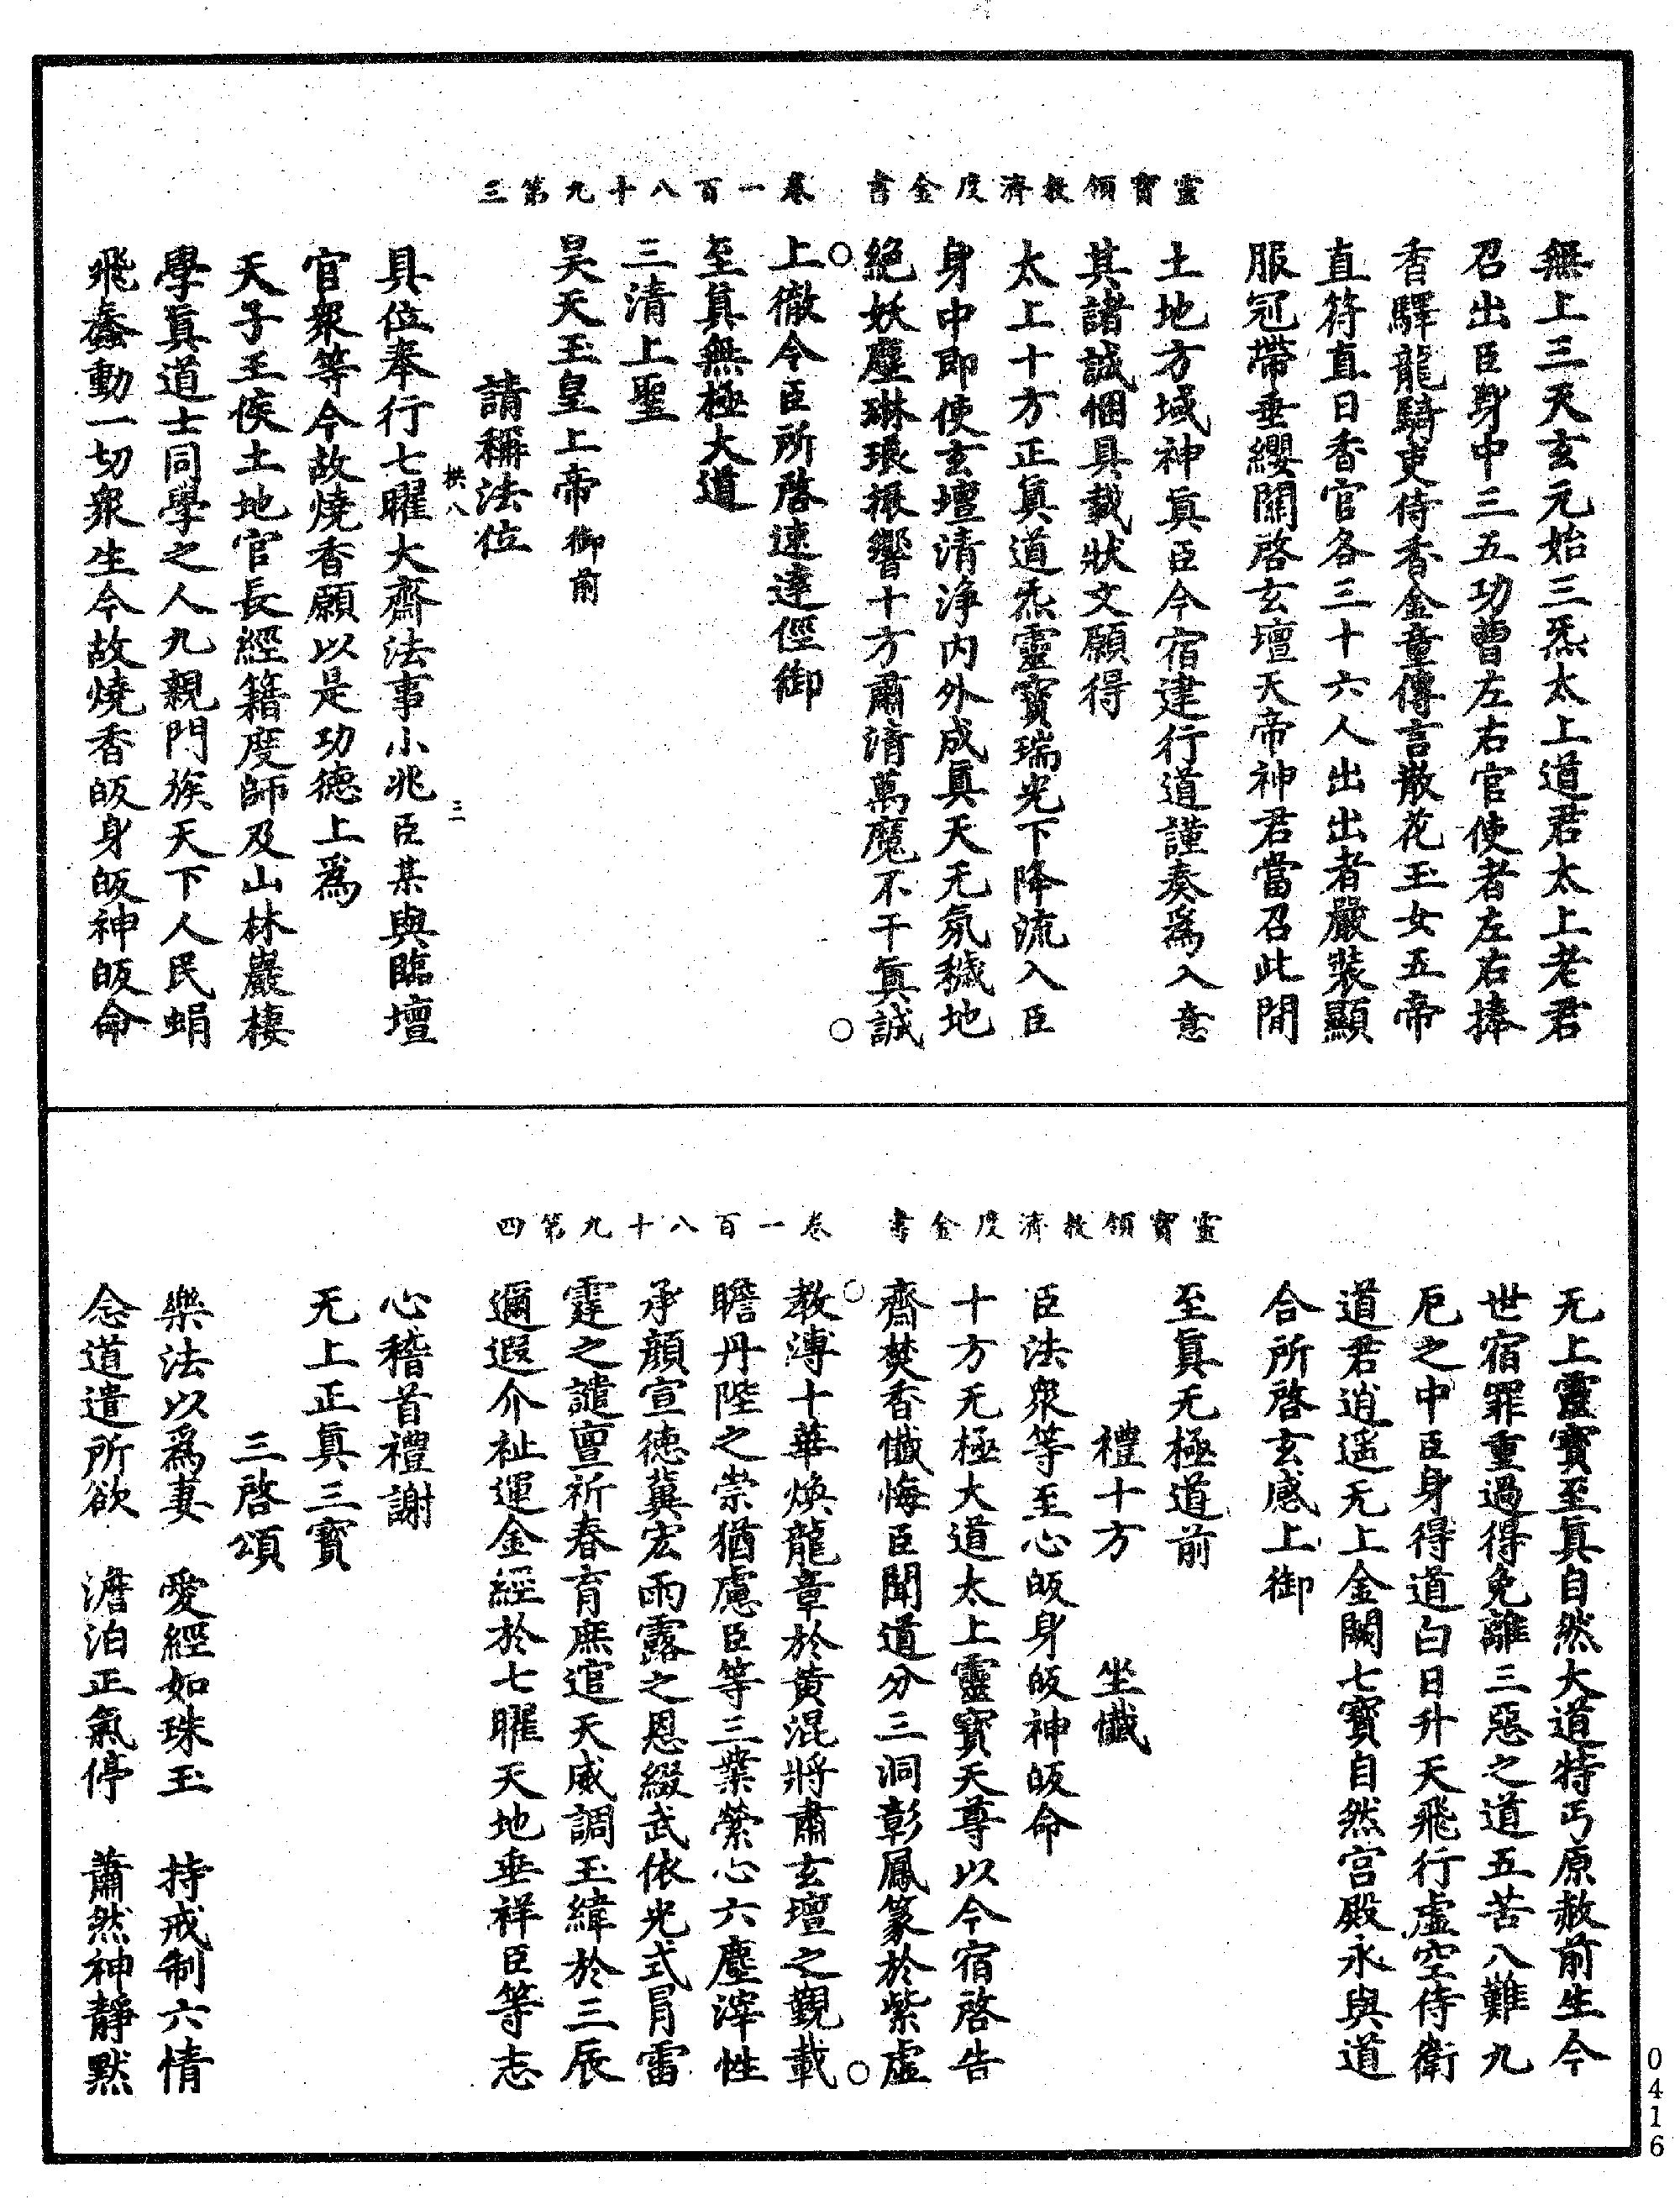 靈寶領教濟度金書　卷一百八十九第三
無上三天玄元始三炁太上道君太上老君
召出臣身中三五功曹左右官使者左右捧
香驛龍騎吏侍香金童傳言散花玉女五帝
直符直日香官各三十六人出出者嚴裝顯
服冠帶垂纓關啓玄壇天帝神君當召此間
土地方域神眞臣今宿建行道謹奏爲入意
其諸誠悃具載狀文願得
太上十方正眞道炁靈寶瑞光下降流入臣
身中即使玄壇清淨內外成眞天无氛穢地
絕妖塵琳琅振響十方肅清萬魔不干眞誠
上徹今臣所啓速達徑御
至眞無極大道
三清上聖
昊天玉皇上帝御前
請稱法位
拱八　三
具位奉行七曜大齋法事小兆臣某與臨壇
官衆等今故燒香願以是功德上爲
天子王侯土地官長經籍度師及山林巖棲
學眞道士同學之人九親門族天下人民蜎
飛蠢動一切衆生今故燒香皈身皈神皈命
靈寶領教濟度金書　卷一百八十九第四
无上靈寶至眞自然大道特丐原赦前生今
世宿罪重過得免離三惡之道五苦八難九
厄之中臣身得道白日升天飛行虛空侍衛
道君逍遥无上金闕七寶自然宫殿永與道
合所啓玄感上御
至眞无極道前
禮十方　坐懺
臣法衆等至心皈身皈神皈命
十方无極大道太上靈寶天尊以今宿啓告
齋焚香懺悔臣聞道分三洞彰鳳篆於紫虛
教溥十華煥龍章於黄混將肅玄壇之覲載
瞻丹陛之崇猶慮臣等三業縈心六塵滓性
承顏宣德冀宏雨露之恩綴武依光式冐雷
霆之譴亶祈春育庶逭天威調玉緯於三辰
邇遐介祉運金經於七曜天地垂祥臣等志
心稽首禮謝
无上正眞三寶
三啓頌
樂法以爲妻　愛經如珠玉　持戒制六情
念道遣所欲　澹泊正氣停　蕭然神靜默
0416